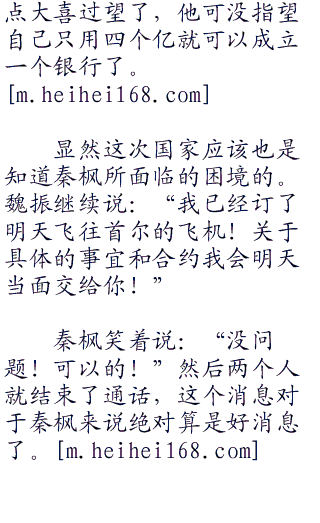 点大喜过望了，他可没指望
自己只用四个亿就可以成立
一个银行了。
[m.heihei168.com]
显然这次国家应该也是
知道秦枫所面临的困境的。
魏振继续说：“我已经订了
明天飞往首尔的飞机！关于
具体的事宜和合约我会明天
当面交给你！”
秦枫笑着说：“没问
题！可以的！”然后两个人
就结束了通话，这个消息对
于秦枫来说绝对算是好消息
了。[m.heihei168.com]